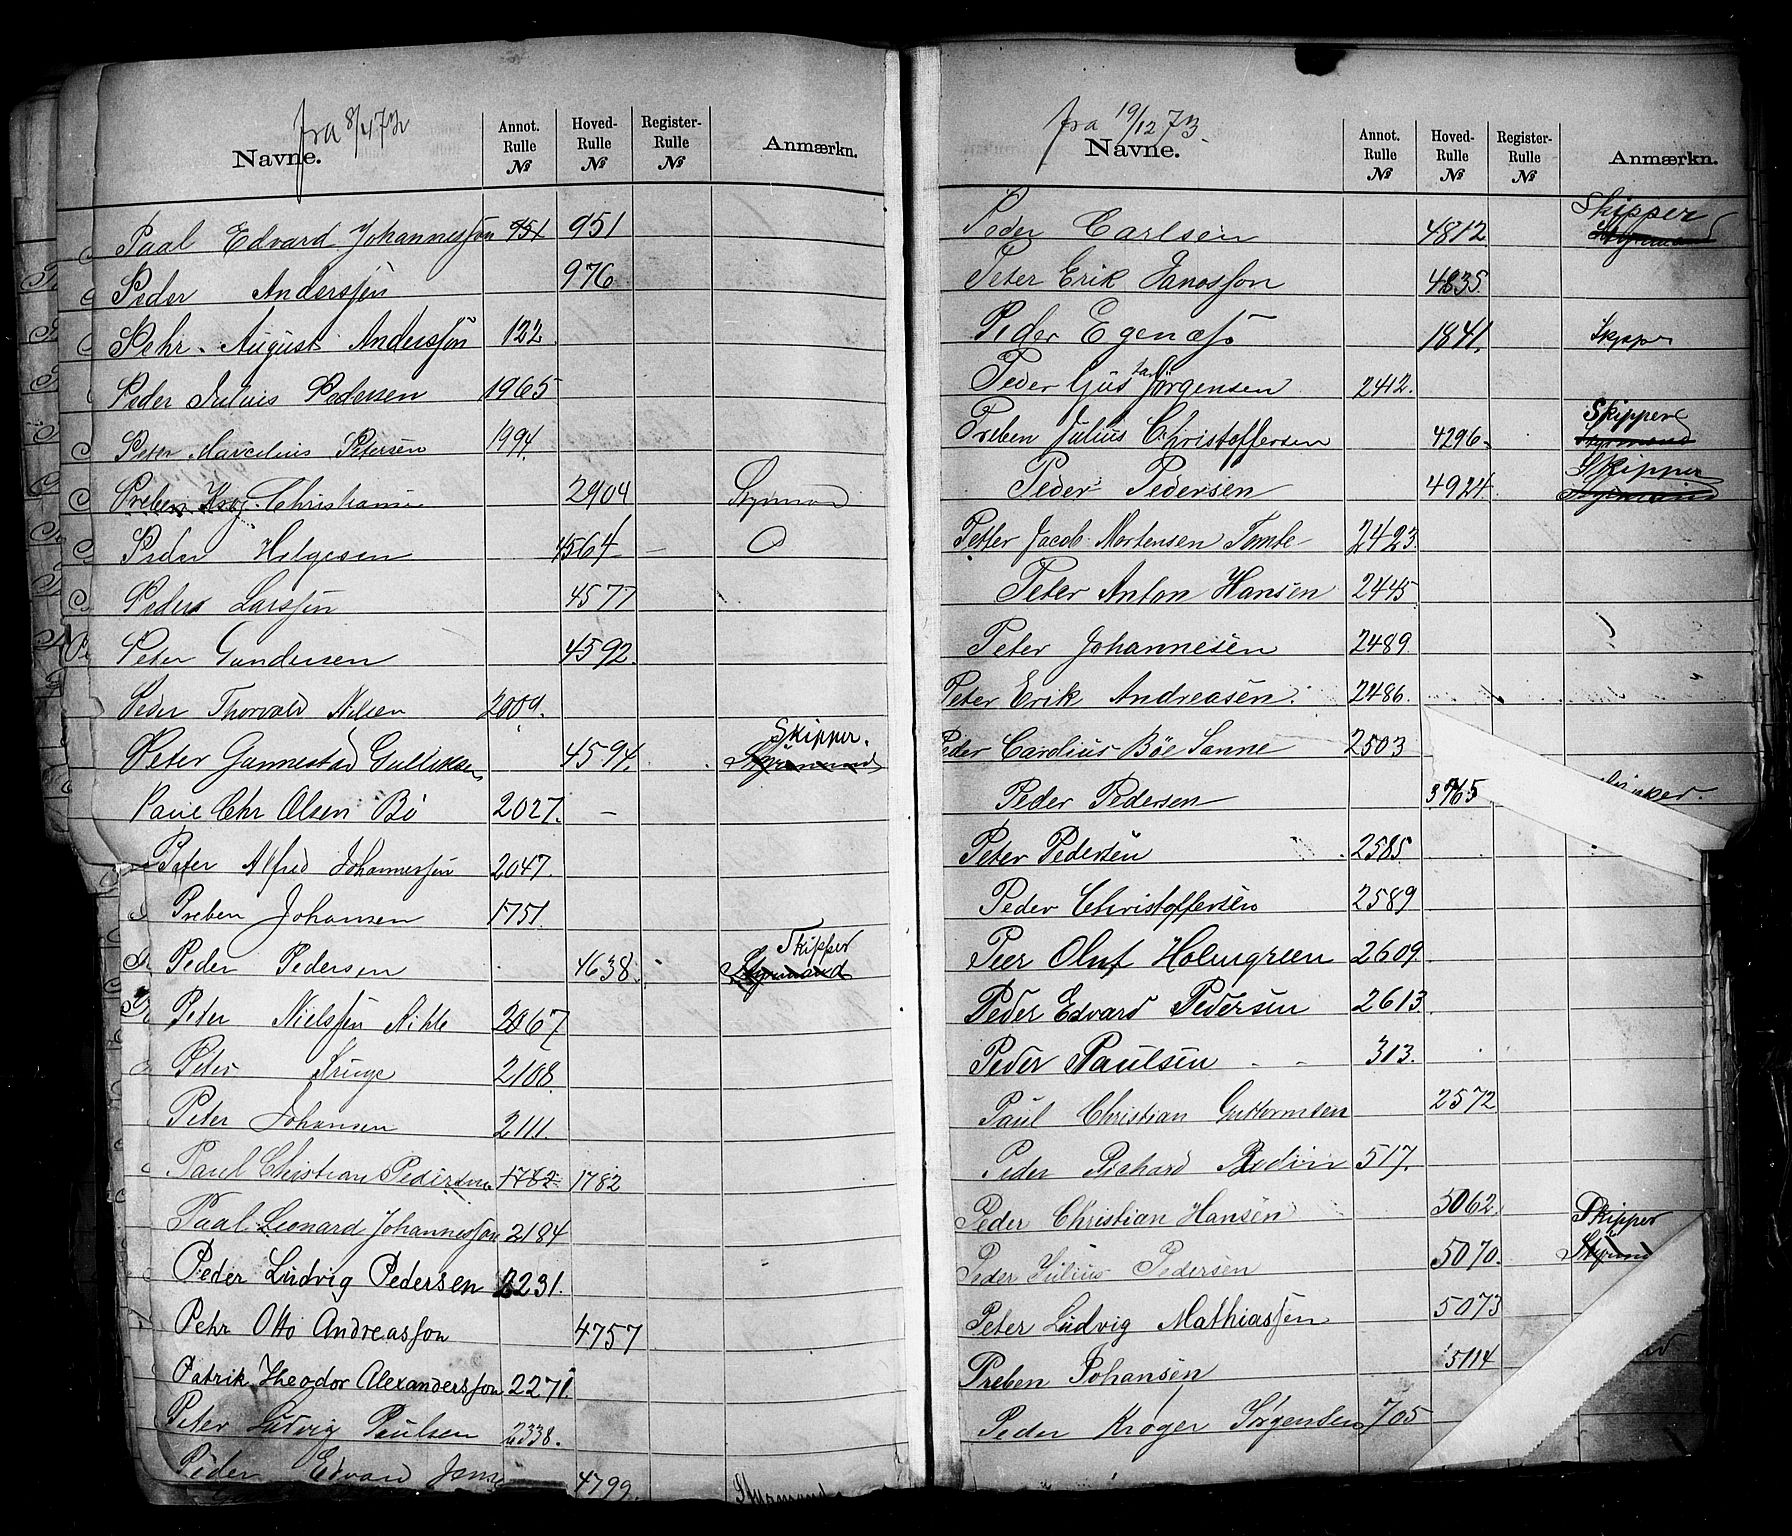 fra 8/4 73
Navne. Annot. Rulle № Hoved-Rulle № Register-Rulle № Anmærkn.
Paal Edvard Johannesson 951 951
Peder Anderssen 976
Pehr August Andersson 122
Peder Julius Pedersen 1965
Peter Marcelius Petersen 1994
Preben Krog Christiansen 2904 Styrmand
Peder Helgesen 4564 -
Peder Larssen 4577
Peter Gundersen 4592
Peder Thorvald Nilsen 2009.
Skipper.
Peter Gunnestad Gulliksen 4594. Styrmand
Paul Chr Olsen Bö 2027. -
Peter Alfred Johannessen 2047.
Preben Johansen 1751.
Skipper
Peder Pedersen 4638. Styrmand
Peter Nielssen Kihle 2067
Peter Kruge 2108
Peter Johansen 2111.
Paul Christian Pedersen 1782 1782
Paal Leonard Johannesson 2184
Peder Ludvig Pedersen 2231.
Pehr Otto Andreasson 4757
Patrik Theodor Alexandersson 2271
Peter Ludvig Paulsen 2338.
Peder Edvard 4799. Styrmand
fra 19/12 73
Navne. Annot. Rulle № Hoved-Rulle № Register-Rulle № Anmærkn.
Skipper
Peder Carlsen 4812 Styrmand
Peter Erik Janosson 4835
Peder Egenæs 1841. Skipper
Peder Gustav Jörgensen 2412.
Skipper
Preben Julius Christoffersen 4296. Styrmand
Skipper
Peder Pedersen 4924 Styrmand
Petter Jacob Mortensen Tombe 2423.
Peter Anton Hansen 2445
Peter Johannesen 2489
Peter Erik Andreasen. 2486.
Peder Carolius Böe Sanne 2503
Peder Pedersen 3765
Peter Pedersen 2585
Peder Christoffersen 2589
Peer Oluf Holmgreen 2609
Peder Edvard Pedersen 2613.
Peder Paulsen - - 313.
Paul Christian Guttormsen 2572
Peder Richard 517.
Peder Christian Hansen 5062.
Skipper
Peder Julius Pedersen 5070. Styrmand
Peter Ludvig Mathiassen 5073
Preben Johansen 5114
Peder Kröger Jörgensen 705